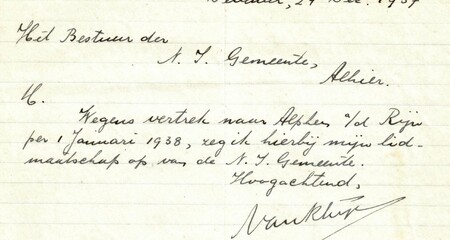 29 Dec. 1937
Het Bestuur der
N. I. Gemeente,
Alhier.
M.
Wegens vertrek naar Alphen a/d Rijn
per 1 Januari 1938, zeg ik hierbij mijn lid-
maatschap op van de N. I. Gemeente.
Hoogachtend,